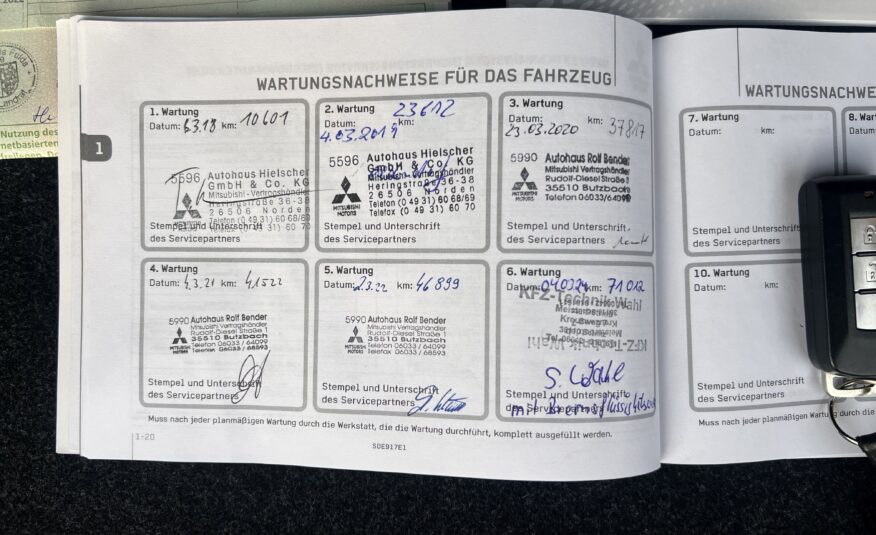 Nutzung des
WARTUNGSNACHWEISE FÜR DAS FAHRZEUG
1
1. Wartung
Datum: 6.3.18 km: 10601
5596 Autohaus Hielscher
GmbH & Co. KG
Mitsubishi-Vertragshändler
Heringstraße 36-38
26506 Norden
Telefon (0 49 31) 60 68/69
Telefax (0 49 31) 60 70
Stempel und Unterschrift
des Servicepartners
2. Wartung 23612
Datum: km:
4.03.2019
5596 Autohaus Hielscher
GmbH & Co. KG
Mitsubishi-Vertragshändler
Heringstraße 36-38
26506 Norden
MITSUBISHI MOTORS
Telefon (0 49 31) 60 68/69
Telefax (0 49 31) 60 70
Stempel und Unterschrift
des Servicepartners
3. Wartung
Datum: km: 37817
23.03.2020
5990 Autohaus Rolf Bender
Mitsubishi Vertragshändler
Rudolf-Diesel Straße 1
35510 Butzbach
MITSUBISHI MOTORS
Telefon 06033/64099
Stempel und Unterschrift
des Servicepartners
4. Wartung
Datum: 4.3.21 km: 41522
5990 Autohaus Rolf Bender
Mitsubishi Vertragshändler
Rudolf-Diesel Straße 1
35510 Butzbach
Telefon 06033 / 64099
Telefax 06033 / 68593
Stempel und Unterschrift
des Servicepartners
5. Wartung
Datum: 2.3.22 km: 46899
5990 Autohaus Rolf Bender
Mitsubishi Vertragshändler
Rudolf-Diesel Straße 1
35510 Butzbach
Telefon 06033 / 64099
Telefax 06033 / 68593
Stempel und Unterschrift
des Servicepartners
6. Wartung
Datum: 040324 km: 71012
KFZ-Technik Wahl
Meisterbetrieb
S. Wahl
Stempel und Unterschrift
des Servicepartners
mit Bremsflüssigkeit
Muss nach jeder planmäßigen Wartung durch die Werkstatt, die die Wartung durchführt, komplett ausgefüllt werden.
1-20
SOE917E1
WARTUNGSNACHWE
7. Wartung
Datum: km:
Stempel und Unterschrift
des Servicepartners
8. Wart
Datum:
10. Wartung
Datum: km:
Stempel und Unterschrift
des Servicepartners
Muss nach jeder planmäßigen Wartung durch die